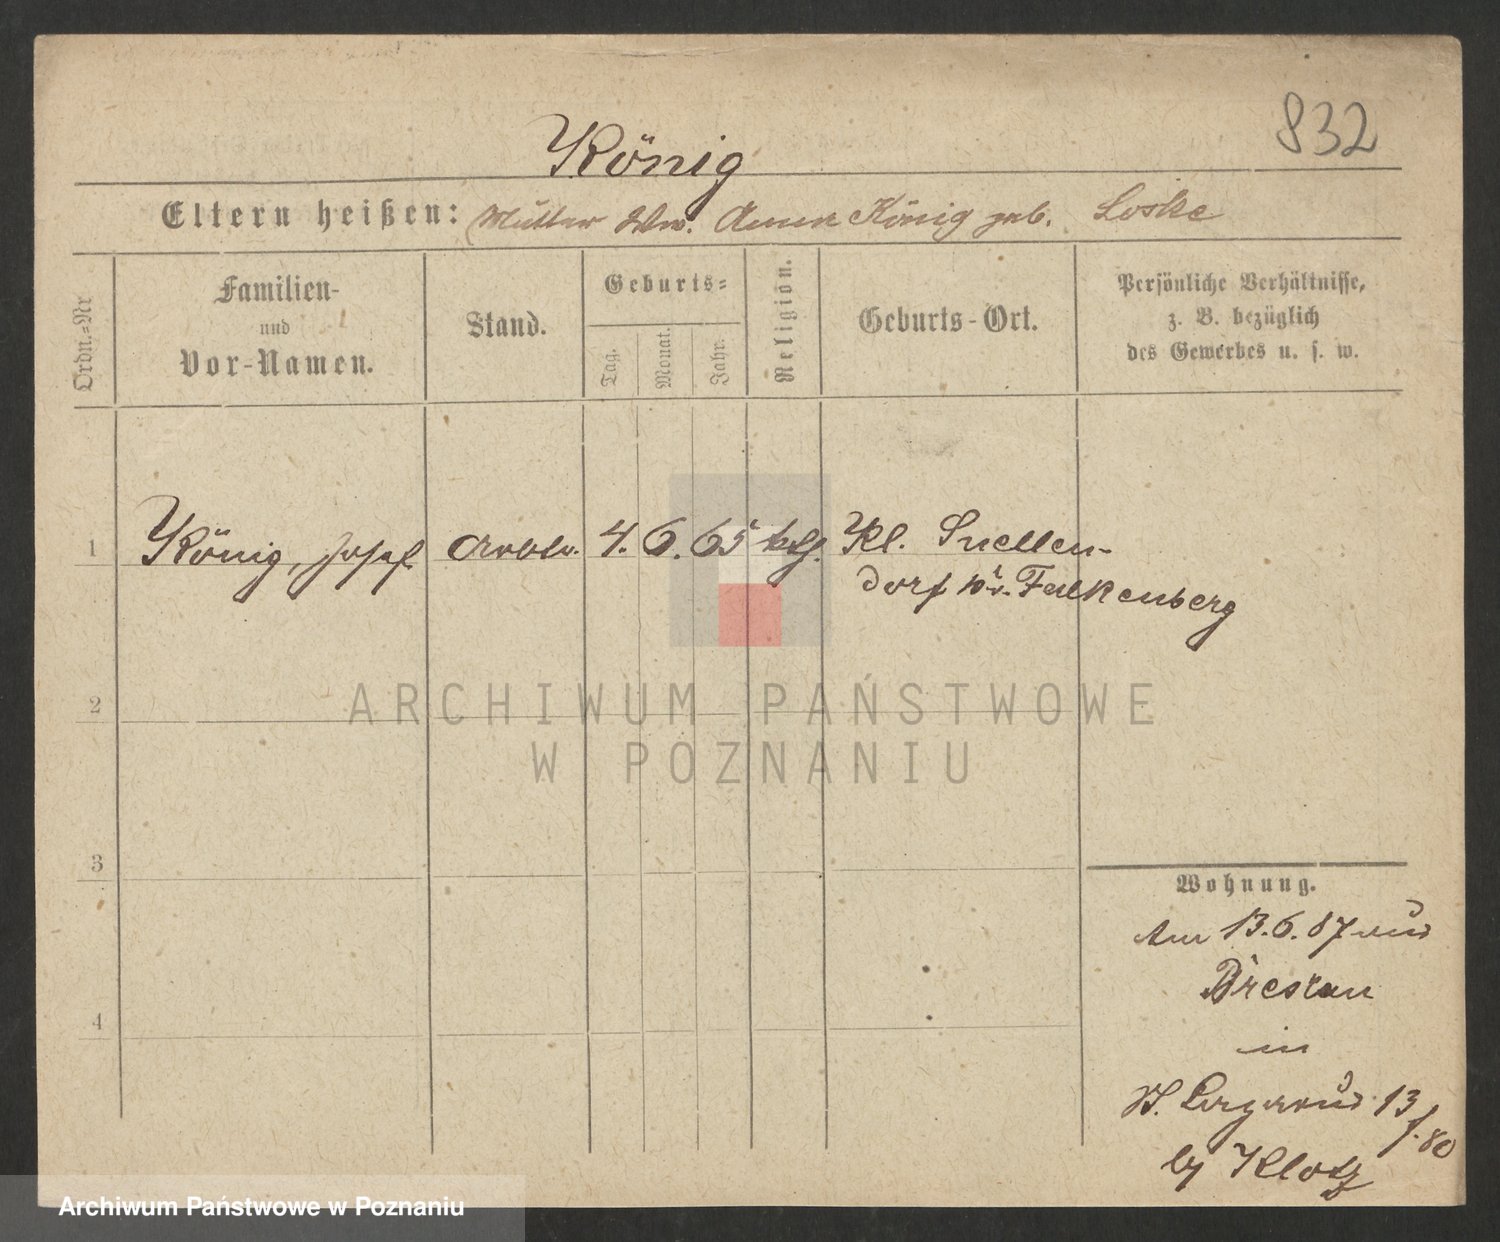 832
König
Eltern heißen: Mutter Ww. Anna König geb. Loske
Ordn.=Nr
Familien-
und
Vor-Namen.
Stand.
Geburts=
Tag.
Monat.
Jahr.
Religion.
Geburts-Ort.
Persönliche Verhältnisse,
z. B. bezüglich
des Gewerbes u. s. w.
1 König, Josef Arbtr. 4. 6. 65 kth. Kl. Snellen-
dorf Kr. Falkenberg
2
3
4
Wohnung.
Am 13.6.87 aus
Breslau
in
St. Lazarus 13
f. 80
by Klotz
ARCHIWUM PAŃSTWOWE
W POZNANIU
Archiwum Państwowe w Poznaniu